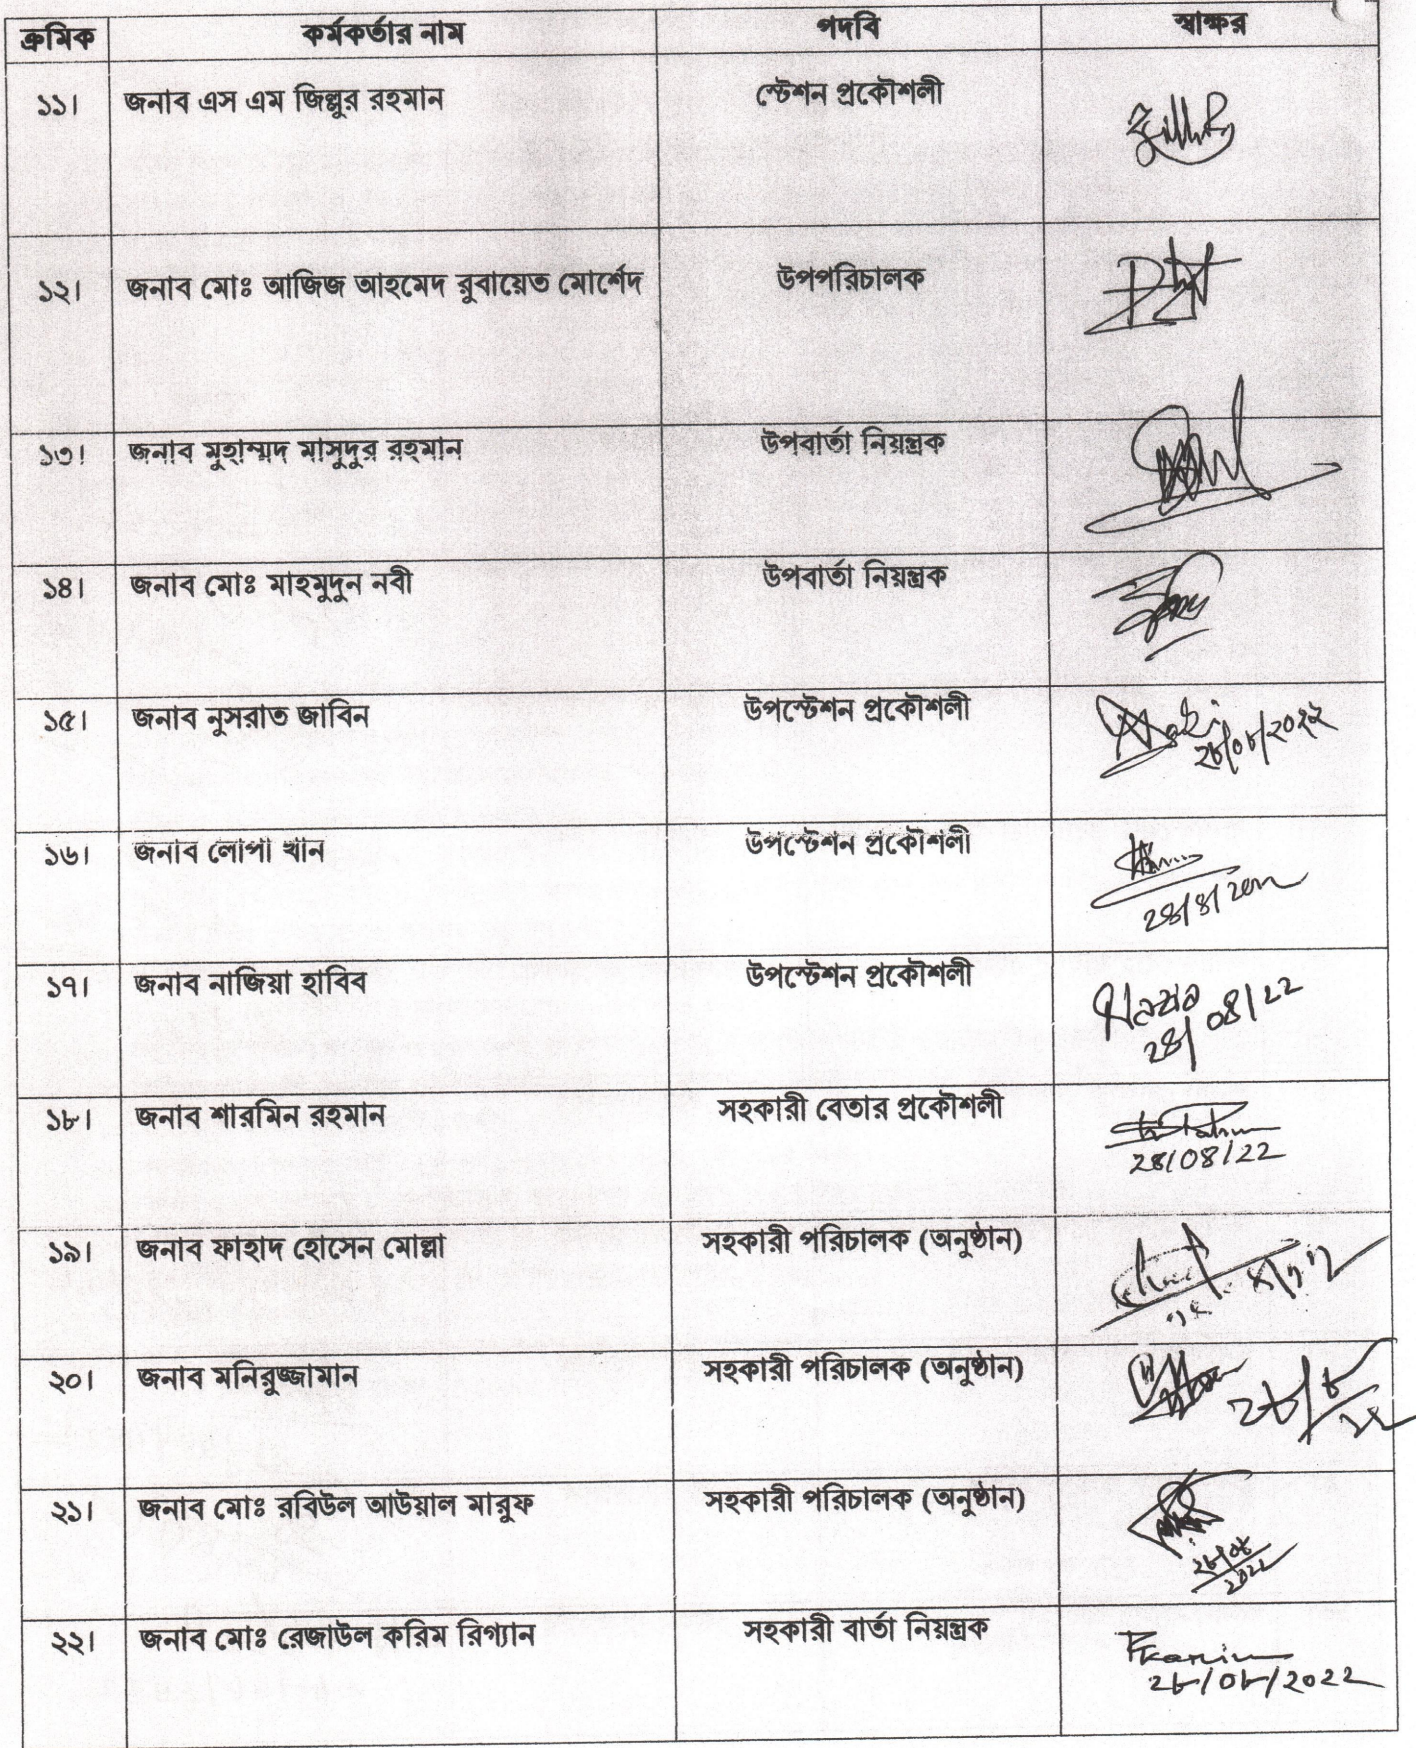 ক্রমিক কর্মকর্তার নাম পদবি স্বাক্ষর
১১। জনাব এস এম জিল্লুর রহমান স্টেশন প্রকৌশলী
১২। জনাব মোঃ আজিজ আহমেদ রুবায়েত মোর্শেদ উপপরিচালক
১৩। জনাব মুহাম্মদ মাসুদুর রহমান উপবার্তা নিয়ন্ত্রক
১৪। জনাব মোঃ মাহমুদুন নবী উপবার্তা নিয়ন্ত্রক
১৫। জনাব নুসরাত জাবিন উপস্টেশন প্রকৌশলী
২৮/০৮/২০২২
১৬। জনাব লোপা খান উপস্টেশন প্রকৌশলী
28/8/2022
১৭। জনাব নাজিয়া হাবিব উপস্টেশন প্রকৌশলী
28/08/22
১৮। জনাব শারমিন রহমান সহকারী বেতার প্রকৌশলী
28/08/22
১৯। জনাব ফাহাদ হোসেন মোল্লা সহকারী পরিচালক (অনুষ্ঠান)
২০। জনাব মনিরুজ্জামান সহকারী পরিচালক (অনুষ্ঠান)
২৮/৮/২২
২১। জনাব মোঃ রবিউল আউয়াল মারুফ সহকারী পরিচালক (অনুষ্ঠান)
২৮/০৮
২০২২
২২। জনাব মোঃ রেজাউল করিম রিগ্যান সহকারী বার্তা নিয়ন্ত্রক
Rkarim
২৮/০৮/২০২২